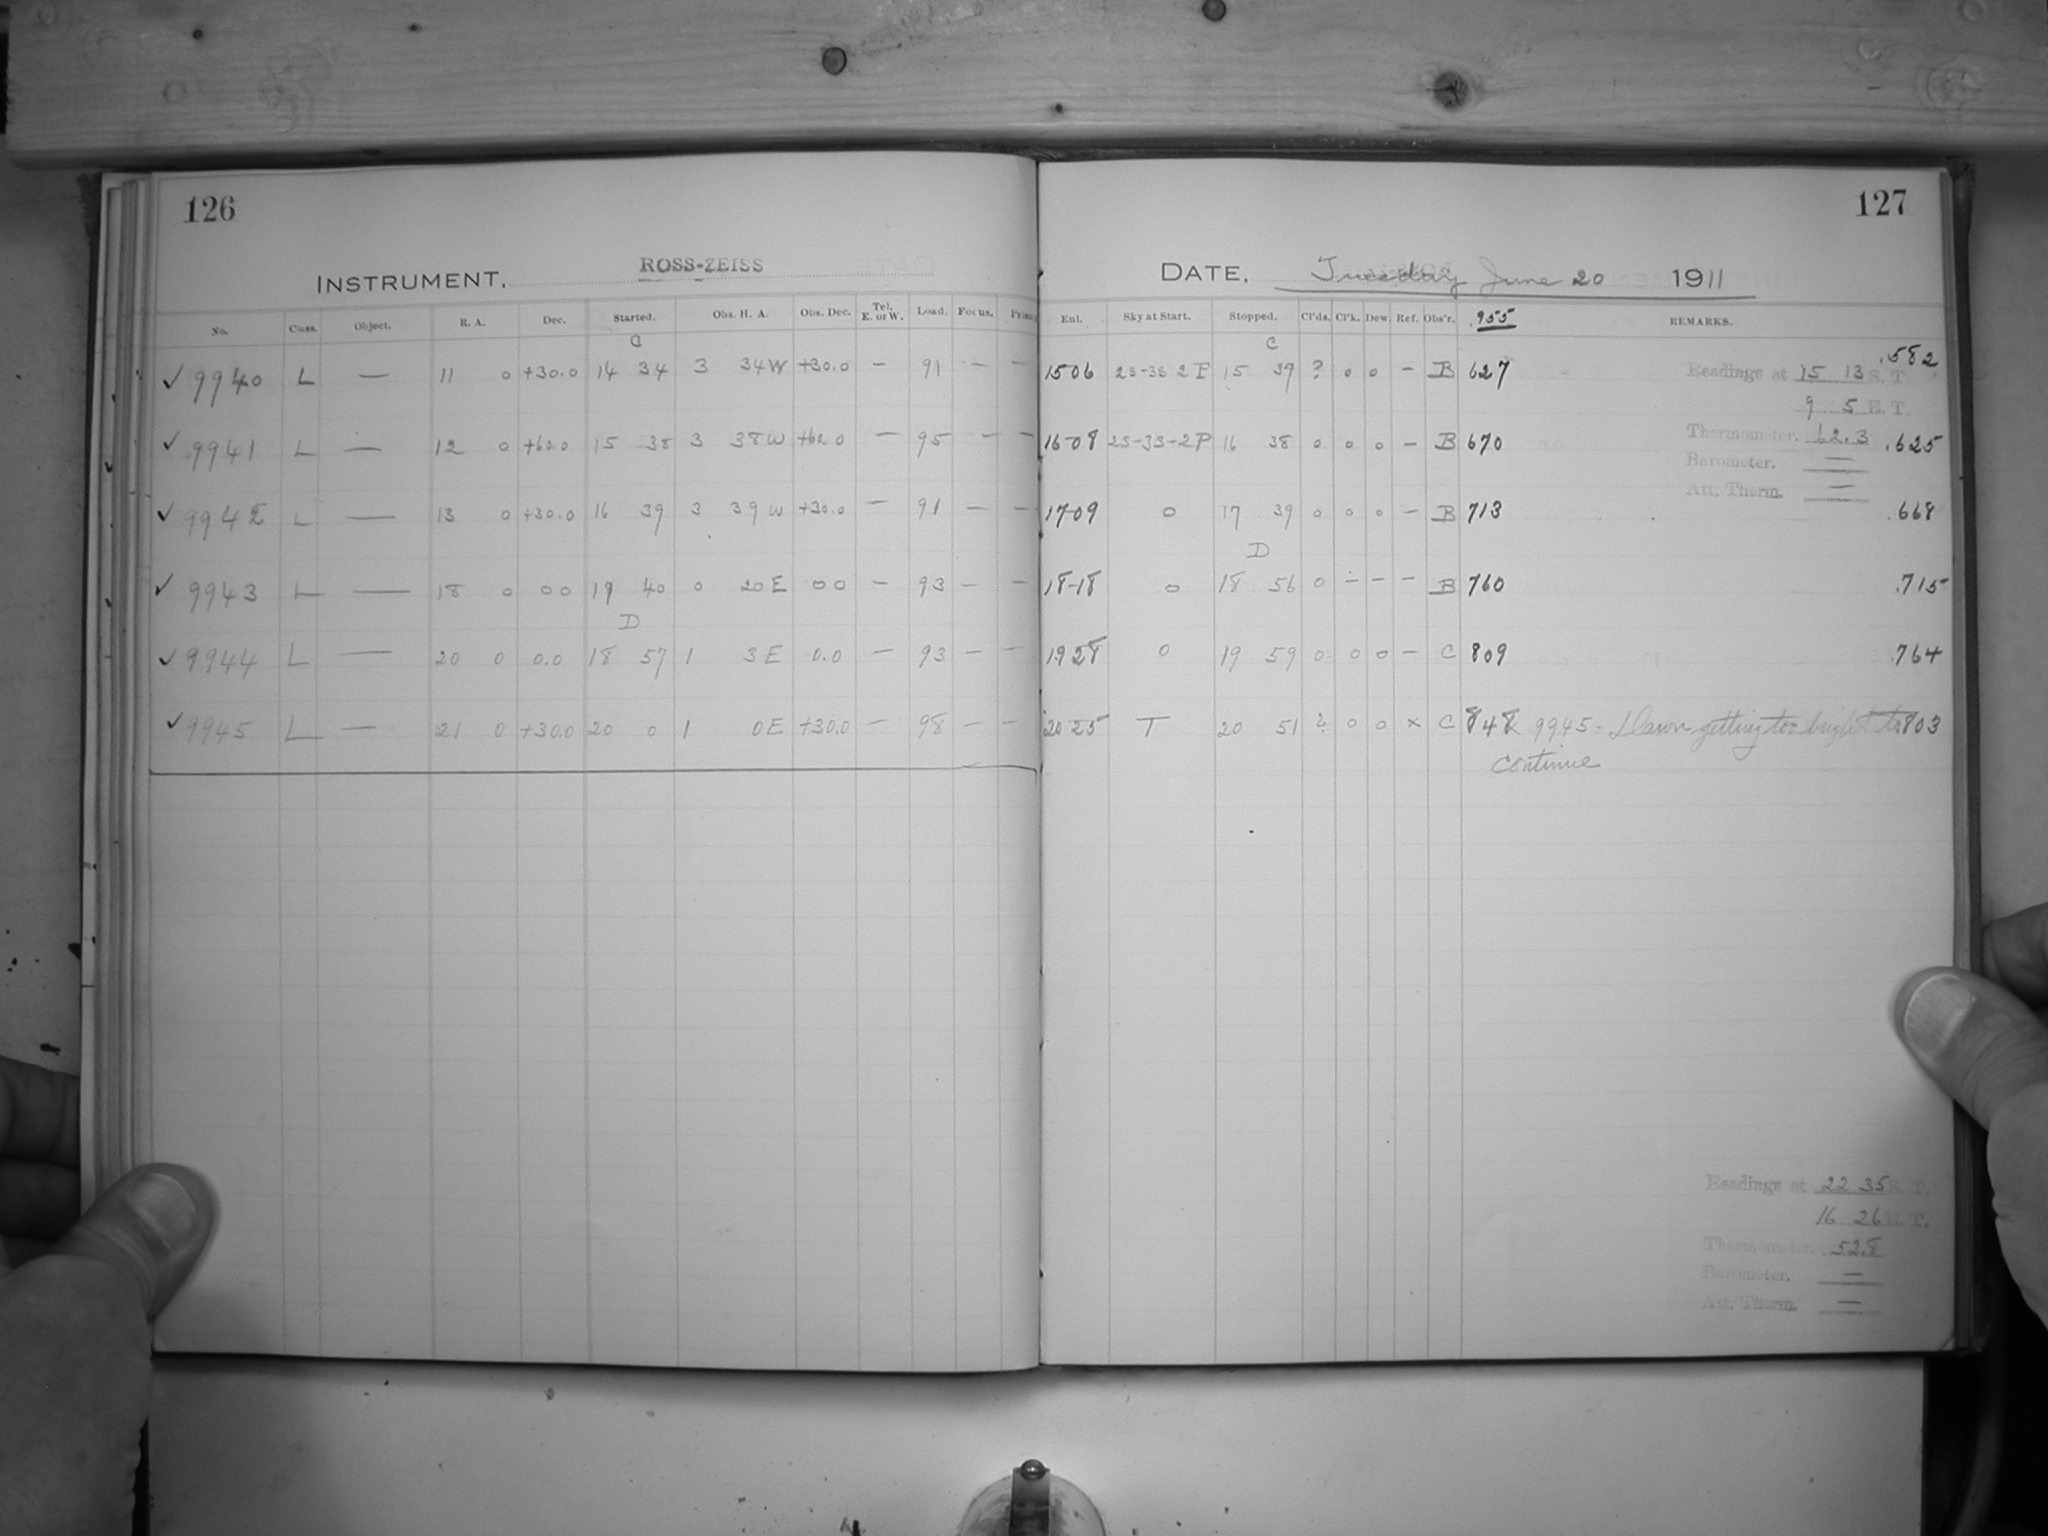 126
INSTRUMENT, ROSS-ZEISS
No. Class. Object. R. A. Dec. Started. Obs. H. A. Obs. Dec. Tel. E. or W. Load. Focus. Prism
C
✓ 9940 L — 11 0 +30.0 14 34 3 34 W +30.0 — 91 — —
✓ 9941 L — 12 0 +60.0 15 38 3 38 W +60.0 — 95 — —
✓ 9942 L — 13 0 +30.0 16 39 3 39 W +30.0 — 91 — —
✓ 9943 L — 18 0 00 17 40 0 20 E 00 — 93 — —
D
✓ 9944 L — 20 0 0.0 18 57 1 3 E 0.0 — 93 — —
✓ 9945 L — 21 0 +30.0 20 0 1 0 E +30.0 — 98 — —
127
DATE, Tuesday June 20 1911
Enl. Sky at Start. Stopped. Cl'ds. Cl'k. Dew. Ref. Obs'r. .955 REMARKS.
C
1506 2s-3s 2P 15 39 ? 0 0 — B 627 .582
Readings at 15 13 S. T.
9 5 E. T.
1608 2s-3s-2P 16 38 0 0 0 — B 670 Thermometer. 62.3 .625
Barometer. —
Att. Therm. —
1709 0 17 39 0 0 0 — B 713 .668
D
18-18 0 18 56 0 — — — B 760 .715
1928 0 19 59 0 0 0 — C 809 .764
2025 T 20 51 ? 0 0 x C 848 9945 - Dawn getting too bright to 803
continue
Readings at 22 35 S. T.
16 26 E. T.
Thermometer. 52.8
Barometer. —
Att. Therm. —